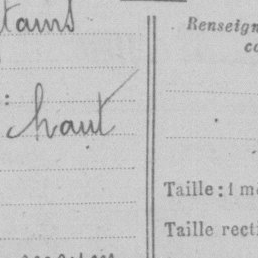 tains
: haut
Renseign
co
Taille : 1 m
Taille recti